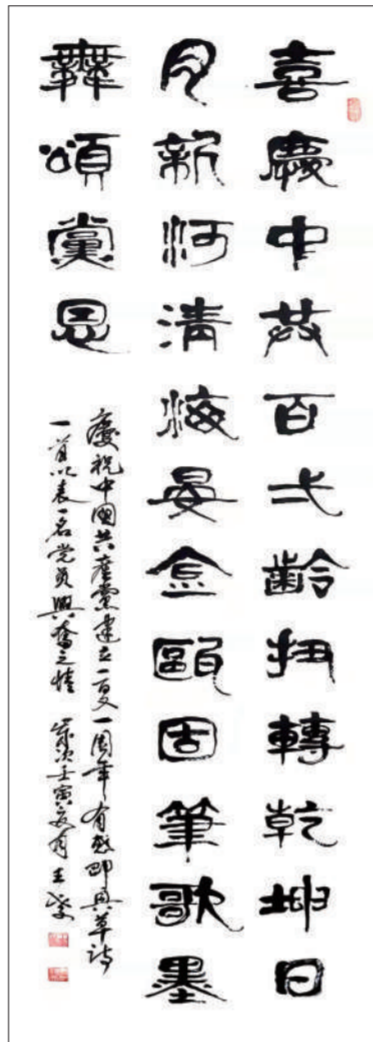 喜慶中共百弌齡扭轉乾坤日
月新河清海晏金甌固筆歌墨
舞頌黨恩
慶祝中國共產黨建立一百又一周年有感即興草詩
一首以表一名党员興奮之情 歲次壬寅夏月王